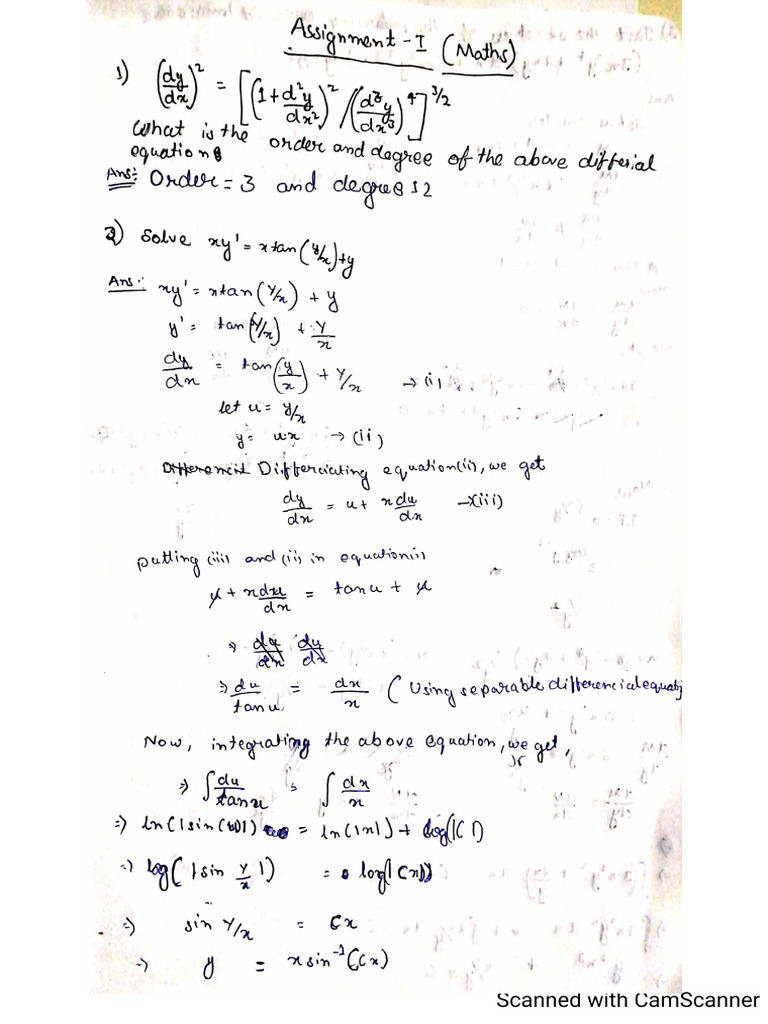 Assignment - I (Maths)
1) (dy/dx)² = [(1+d²y/dx²)² /(d³y/dx³)⁴]^3/2
What is the order and degree of the above differial
equations
Ans:- Order = 3 and degree 12
2) Solve xy' = x tan(y/x)+y
Ans:- xy' = xtan(y/x) + y
y' = tan(y/x) + y/x
dy/dx = tan(y/x) + y/x → (i)
let u = y/x
y = ux → (ii)
Differenciating equation(ii), we get
dy/dx = u + x du/dx → (iii)
putting (iii) and (ii) in equation(i)
u + x du/dx = tan u + u
⇒ du/dx dy/dx
⇒ du/tan u = dx/x ( Using separable differencial equat
Now, integrating the above equation, we get,
⇒ ∫ du/tan u = ∫ dx/x
⇒ ln(|sin(u)|) = ln(|x|) + log(|C|)
⇒ log(|sin y/x|) = log(|Cx|)
⇒ sin y/x = Cx
⇒ y = x sin⁻¹(Cx)
Scanned with CamScanner